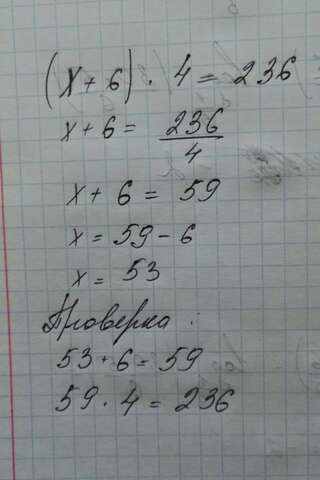 (x + 6) · 4 = 236
x + 6 = 236/4
x + 6 = 59
x = 59 - 6
x = 53
Проверка:
53 + 6 = 59
59 · 4 = 236